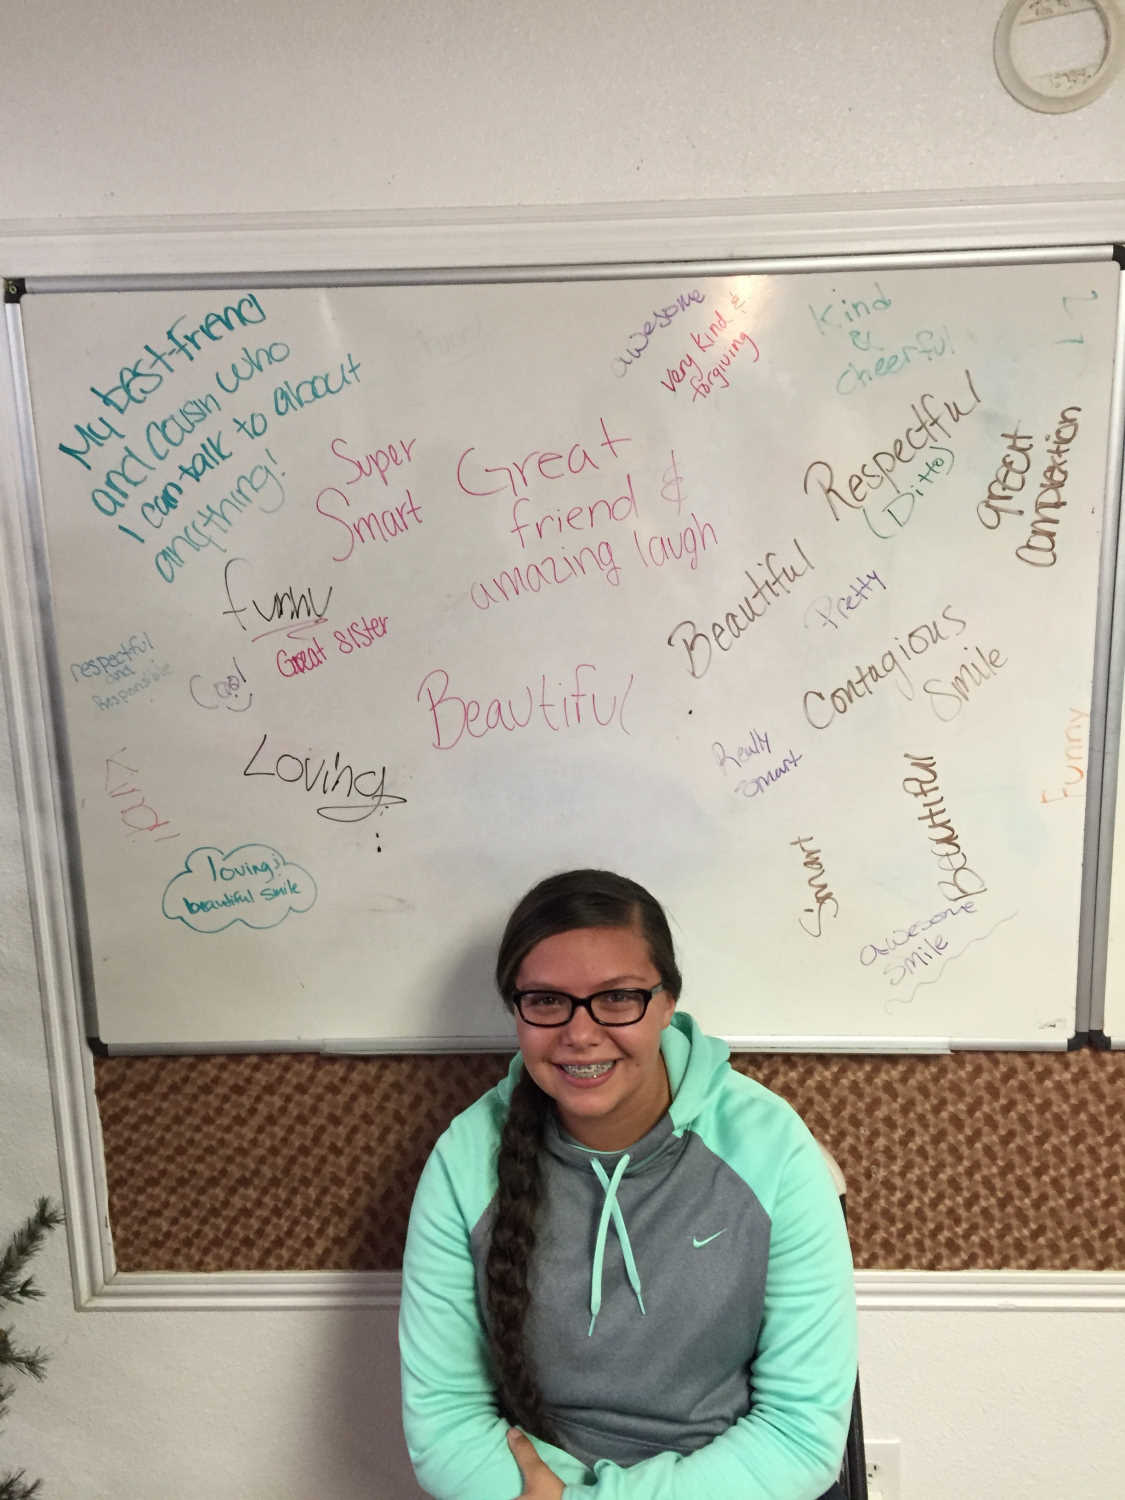 My best-friend
and cousin who
I can talk to about
anything!
Super
Smart
Great
friend &
amazing laugh
awesome
Very kind &
forgiving
Kind
&
cheerful
Respectful
(Ditto)
great
complextion
funny
Great sister
respectful
and
Responsible
Cool
Beautiful
Beautiful
Pretty
Contagious
Smile
Loving
Really
smart
Funny
Kind
loving :)
beautiful smile
Smart
Beautiful
awesome
smile